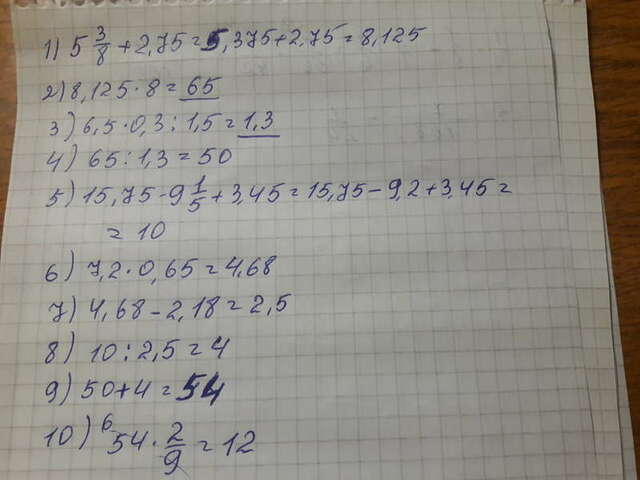 1) 5 3/8 + 2,75 = 5,375 + 2,75 = 8,125
2) 8,125 · 8 = 65
3) 65 · 0,3 : 15 = 1,3
4) 65 : 13 = 50
5) 15,75 - 9 1/5 + 3,45 = 15,75 - 9,2 + 3,45 =
= 10
6) 7,2 · 0,65 = 4,68
7) 4,68 - 2,18 = 2,5
8) 10 : 2,5 = 4
9) 50 + 4 = 54
10) 6 54 · 2/9 = 12